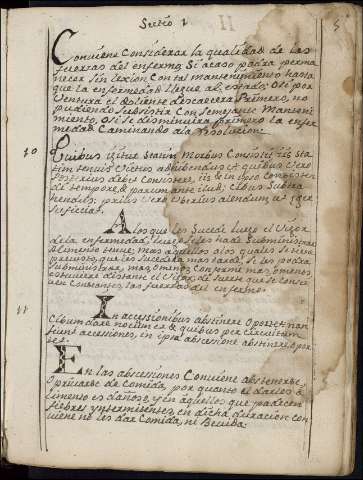 Sectio 1
5
Conviene Considerar la qualidad de las
fuerzas del enfermo, Si acaso podra perma
necer sin lecion Con tal mantenimiento hasta
que la enfermedad llegue al estado; O si por
Ventura el doliente descaecera Primero, no
pudiendo subsistir Con semejante Manteni
miento, O si se disminuira primero la enfer
medad Caminando a la resolucion
10
Quibus igitur statim Morbus Consistit iis sta
tim tenuis Victus adhibendus et quibus vero
Posterius debet Consistere, iis & in ipso Consisten
di tempore, & parum ante illud; Cibus Subtra
hendus; prius vero Uberius alendum ut eger
sufficiat.
A los que les Sucede luego el Vigor
de la enfermedad, luego se les ha de Subministrar
alimento tenue; mas aquellos a los quales se tiene
previsto, que les sucedera mas tarde, se les podra
Subministrar, mas, o menos, Conforme mas, o menos,
estuviere distante el Vigor, de suerte que se Conser
ven Constantes las fuerzas del enfermo.
11
In accessionibus abstinere Oportet nam
Cibum dare nocuum est & quibus per Circuitum
fiunt accessiones, in ipsa abscesione abstinere, opor
tet.
En las abscessiones Conviene abstenerse
O privarse de Comida, por quanto el darles a
limento es danoso, y en aquellos que padecen
fiebres yntermitentes en dicha duracion con
viene no les dar Comida, ni Bevida: